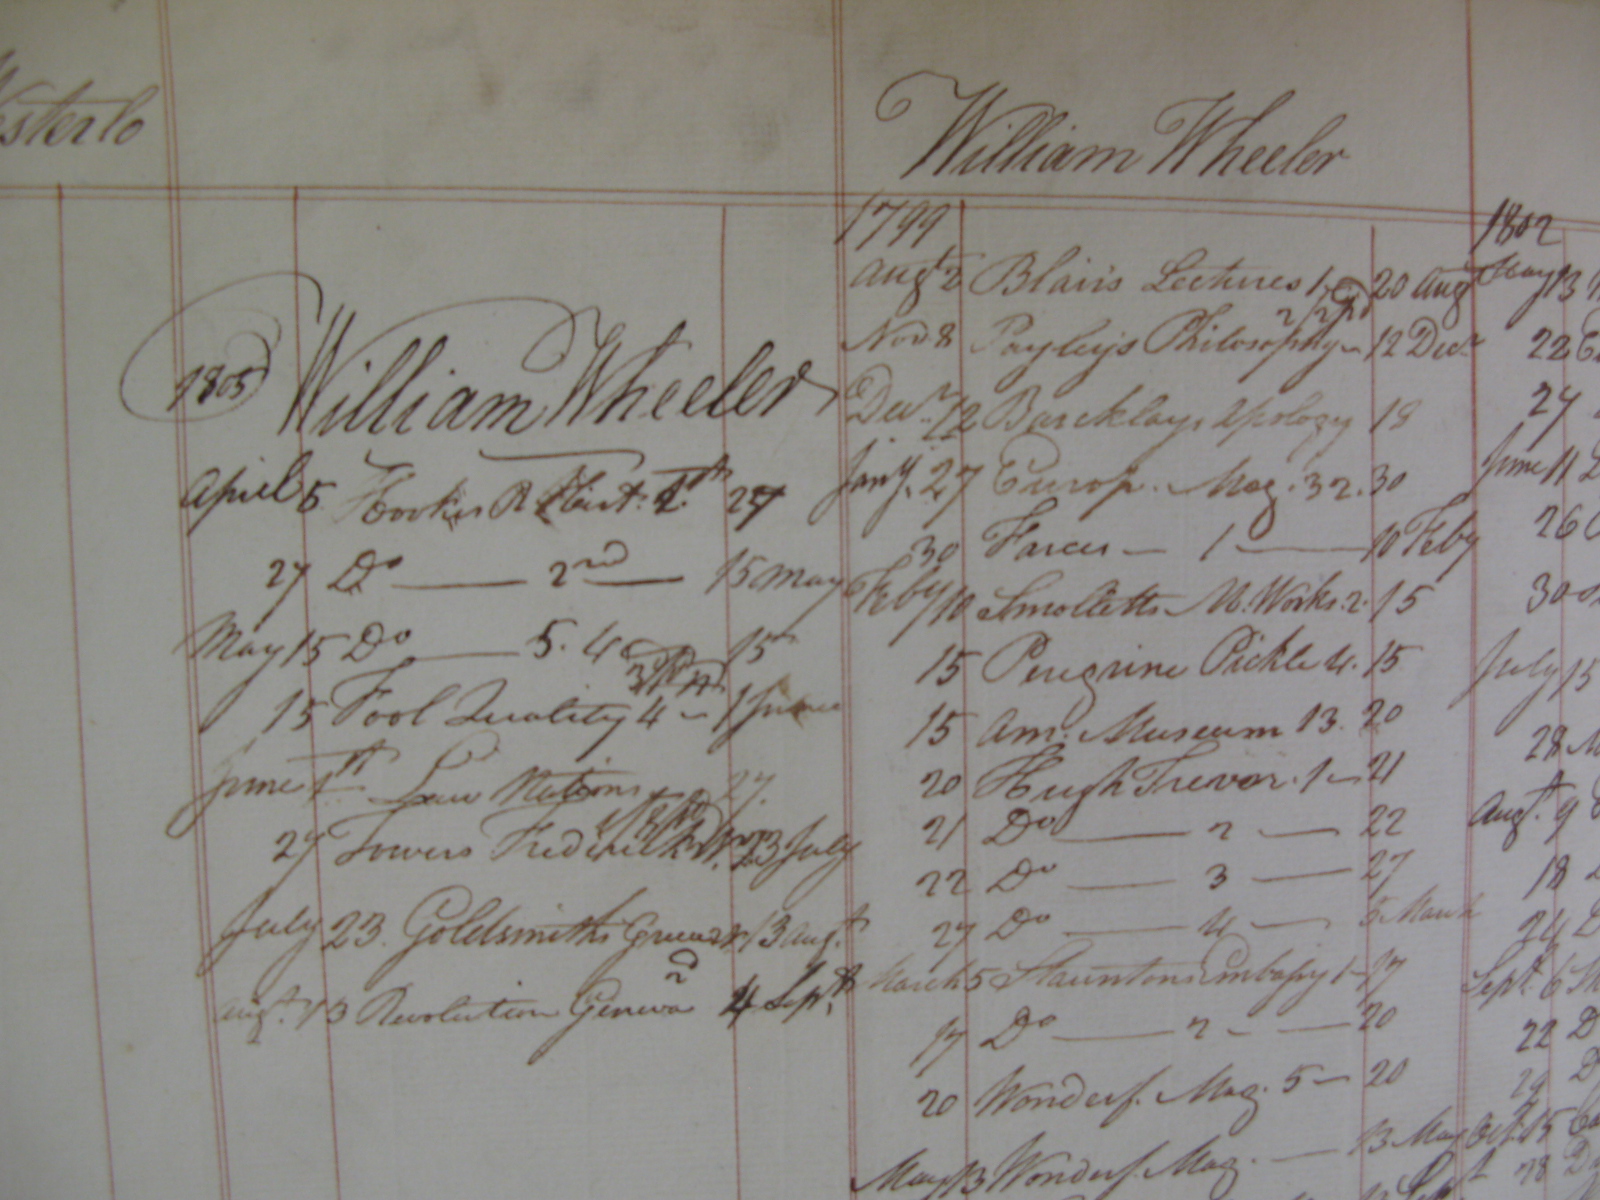 William Wheeler
1805 William Wheeler
April 5 Hookes R Hist. 1st 27
27 Do 2nd 15 May
May 15 Do 5. 4 15
15 Fool Quality 4 1 June
June 1st Law Nations 27
27 Towers Frederick 23 July
July 23. Goldsmiths Greece 13 Augt.
Augt. 13 Revolution Geneva 2d 4 Sept.
1799
Augt 2 Blairs Lectures 1 20 Augt
Nov. 8 Payley's Philosophy 12 Decr
Decr. 12 Barcklays Apology 18
Jany. 27 Europ. Mag. 32. 30
30 Farces — 1 — 10 Feby
Feby 10 Smolletts M. Works. 2. 15
15 Peregrine Pickle 4. 15
15 Am. Museum 13. 20
20 Hugh Trevor. 1 — 21
21 Do — 2 — 22
22 Do — 3 — 27
27 Do — 4 — 5 March
March 5 Stauntons Embassy 1 — 17
17 Do — 2 — 20
20 Wonderf. Mag. 5 — 20
May 13 Wonderf. Mag. — 13 May
1802
May 13
22
27
June 11
26
30
July 15
28
Augt. 9
18
24
Sept. 6
22
29
Oct. 15
28